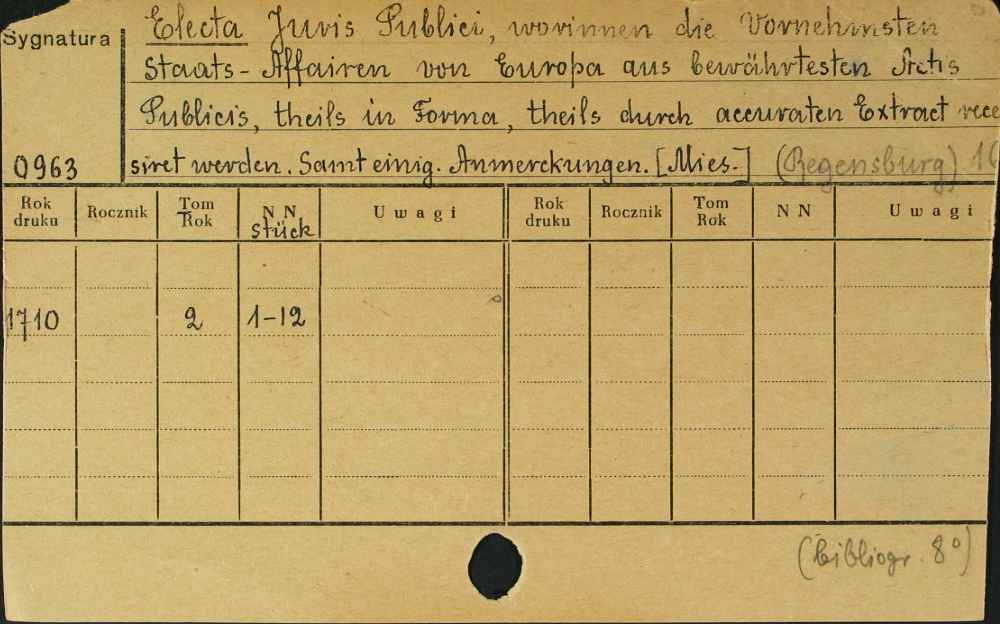 Electa Juris Publici, worinnen die Vornehmsten
Sygnatura
Staats-Affairen von Europa aus bewährtesten Actis
Publicis, theils in Forma, theils durch accuraten Extract rece
0963 siret werden. Samt einig. Anmerckungen. [Mies.] (Regensburg)
Rok druku Rocznik Tom Rok N N Stück Uwagi Rok druku Rocznik Tom Rok N N Uwagi
1710 2 1-12
(bibliogr. 8°)